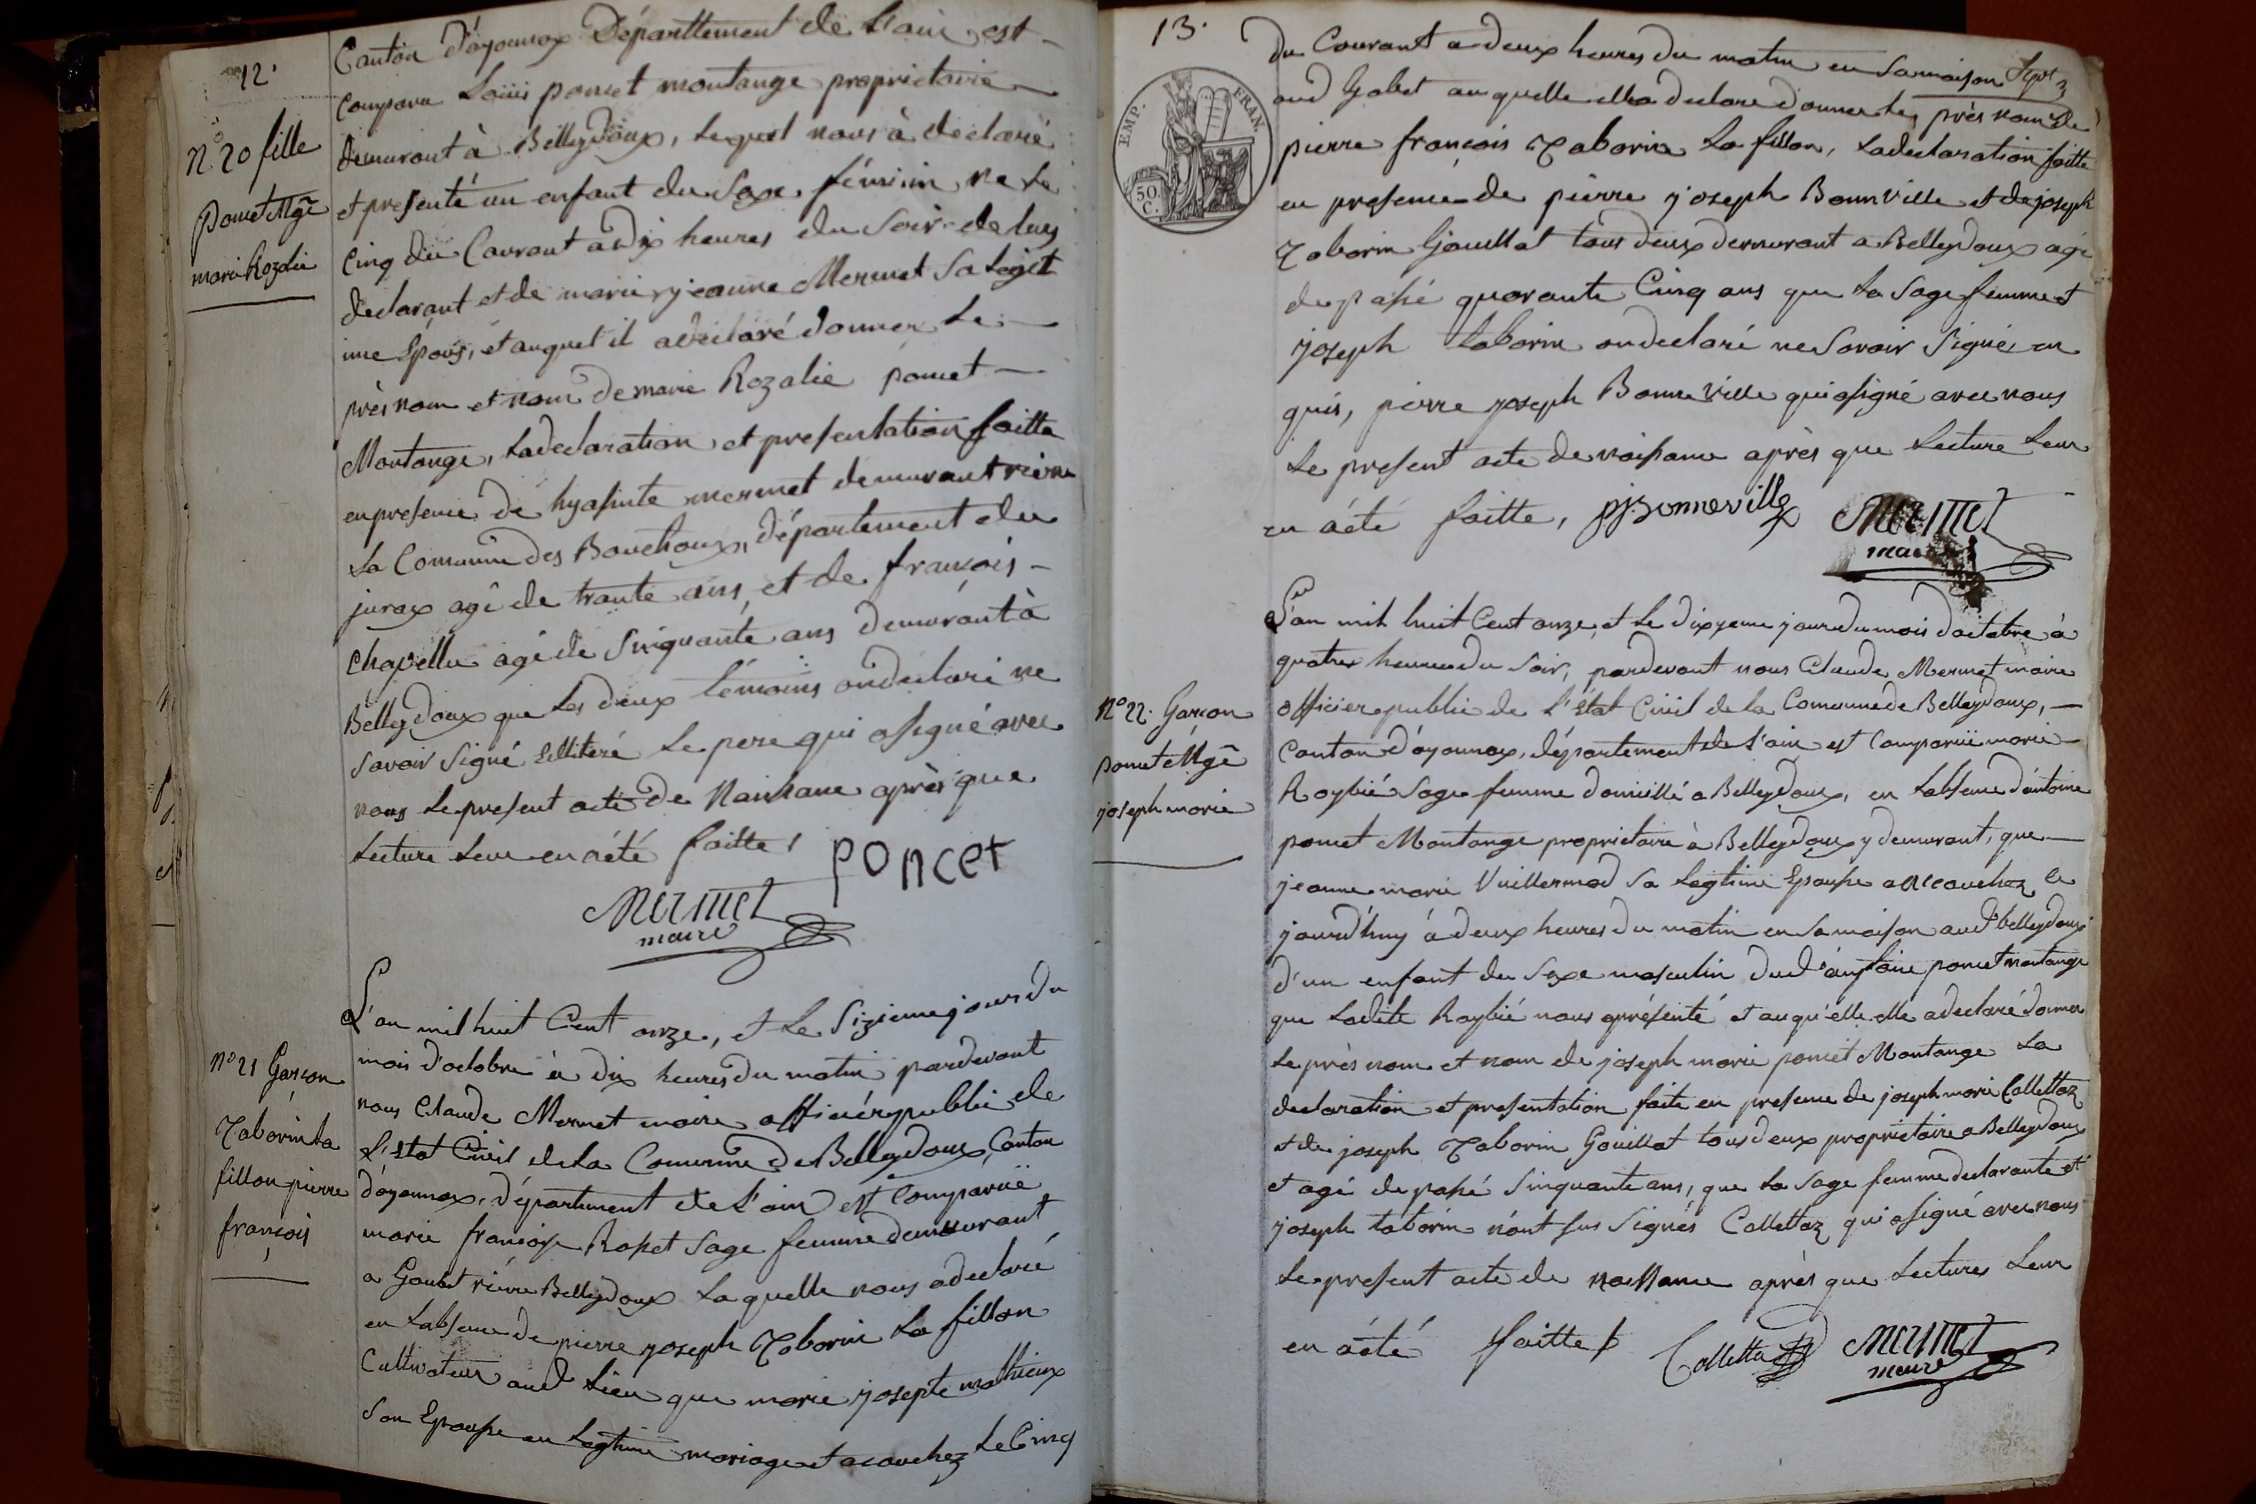 12.
Canton d'oyonnax Départtement de L'ain, est
comparu Loüis poncet montange proprietaire
demurant à Belleydoux, Lequel nous à declaré
et presenté un enfant du Sexe féminin, ne Le
Cinq du Courant a dix heures du Soir de luy
declarant et de marie jeanne Mermet Sa Legit
ime Epouse, et auquel il a declaré donner Le
près nom et nom de marie Rozalie poncet
Montange, La declaration et presentation faitte
en presence de hyasinte mermet demurant rière
La Commune des Bouchoux, département du
jurax agé de trante ans, et de françois
Chapellu agé de Sinquante ans demurant à
Belleydoux que Les deux témoins on declaré ne
Savoir Signé Lellitéré Le pere qui a signé avec
nous Le present acte de Naissance après que
Lecture Leur en a été faitte,
poncet
Mermet
maire
N° 20 fille
Poncet Mge
marie Rozalie
N° 21 Garcon
Taborin la
fillon pierre
françois
L'an mil huit Cent onze, et Le Sizieme jour du
mois d'octobre à dix heures du matin pardevant
nous Claude Mermet maire officiér public de
L'état Civil de La Commune de Belleydoux, Canton
d'oyonnax, département de L'ain est Comparuë
marie françoise Rosset Sage femme demeurant
a Goubet rierre Belleydoux Laquelle nous a declaré
en Labsence de pierre joseph Taborin La fillon
Cultivateur aud Lieu que marie josepte mathieux
Son Epouse en Legtime mariage et acouchez Le Cinq
13.
Sept 3
du Courant a deux heures du matin en Sa maison
aud Gobet au quelle elle a declare donner Les près nom de
pierre françois Taborin La fillon, La declaration faitte
en presence de pierre joseph Bonnville et de joseph
Taborin Gouillat tous deux demurant a Belleydoux agé
de passé quarante Cinq ans que La Sage femme et
joseph taborin on declaré ne Savoir Signé, en
quis, pierre joseph Bonneville qui a signé avec nous
Le present acte de naissance après que Lecture Leur
en a été faitte, pj Bonneville Mermet
maire
EMP. FRAN.
50 C.
N° 22. Garcon
poncet Mge
joseph marie
L'an mil huit Cent onze, et Le dixyeme jour du mois d'octobre à
quatres heures du Soir, pardevant nous Claude Mermet maire
officier public de L'état Civil de La Commune de Belleydoux,
Canton d'oyonnax, département de L'ain est Comparuë marie
Roybié Sage femme domicillé a Belleydoux, en Labsence d'antoine
poncet Montange proprietaire à Belleydoux y demurant, que
jeanne marie Vuillermod Sa Legtime Epouse a accouchez ce
jourd'huy à deux heures du matin en Sa maison aud belleydoux
d'un enfant du Sexe masculin dud antoine poncet montange
que Ladite Roybié nous a présenté et au qu'elle elle a declaré donner
Le près nom et nom de joseph marie poncet Montange La
declaration et presentation faite en presence de joseph marie Collettaz
et de joseph Taborin Gouillat tous deux proprietaire a Belleydoux
et agé de passé Sinquante ans, que La Sage femme declarante et
joseph taborin n'ont Sus Signés Collettaz qui a signé avec nous
Le present acte de naissance après que Lectures Leur
en a été faitte
Collettaz Mermet
maire